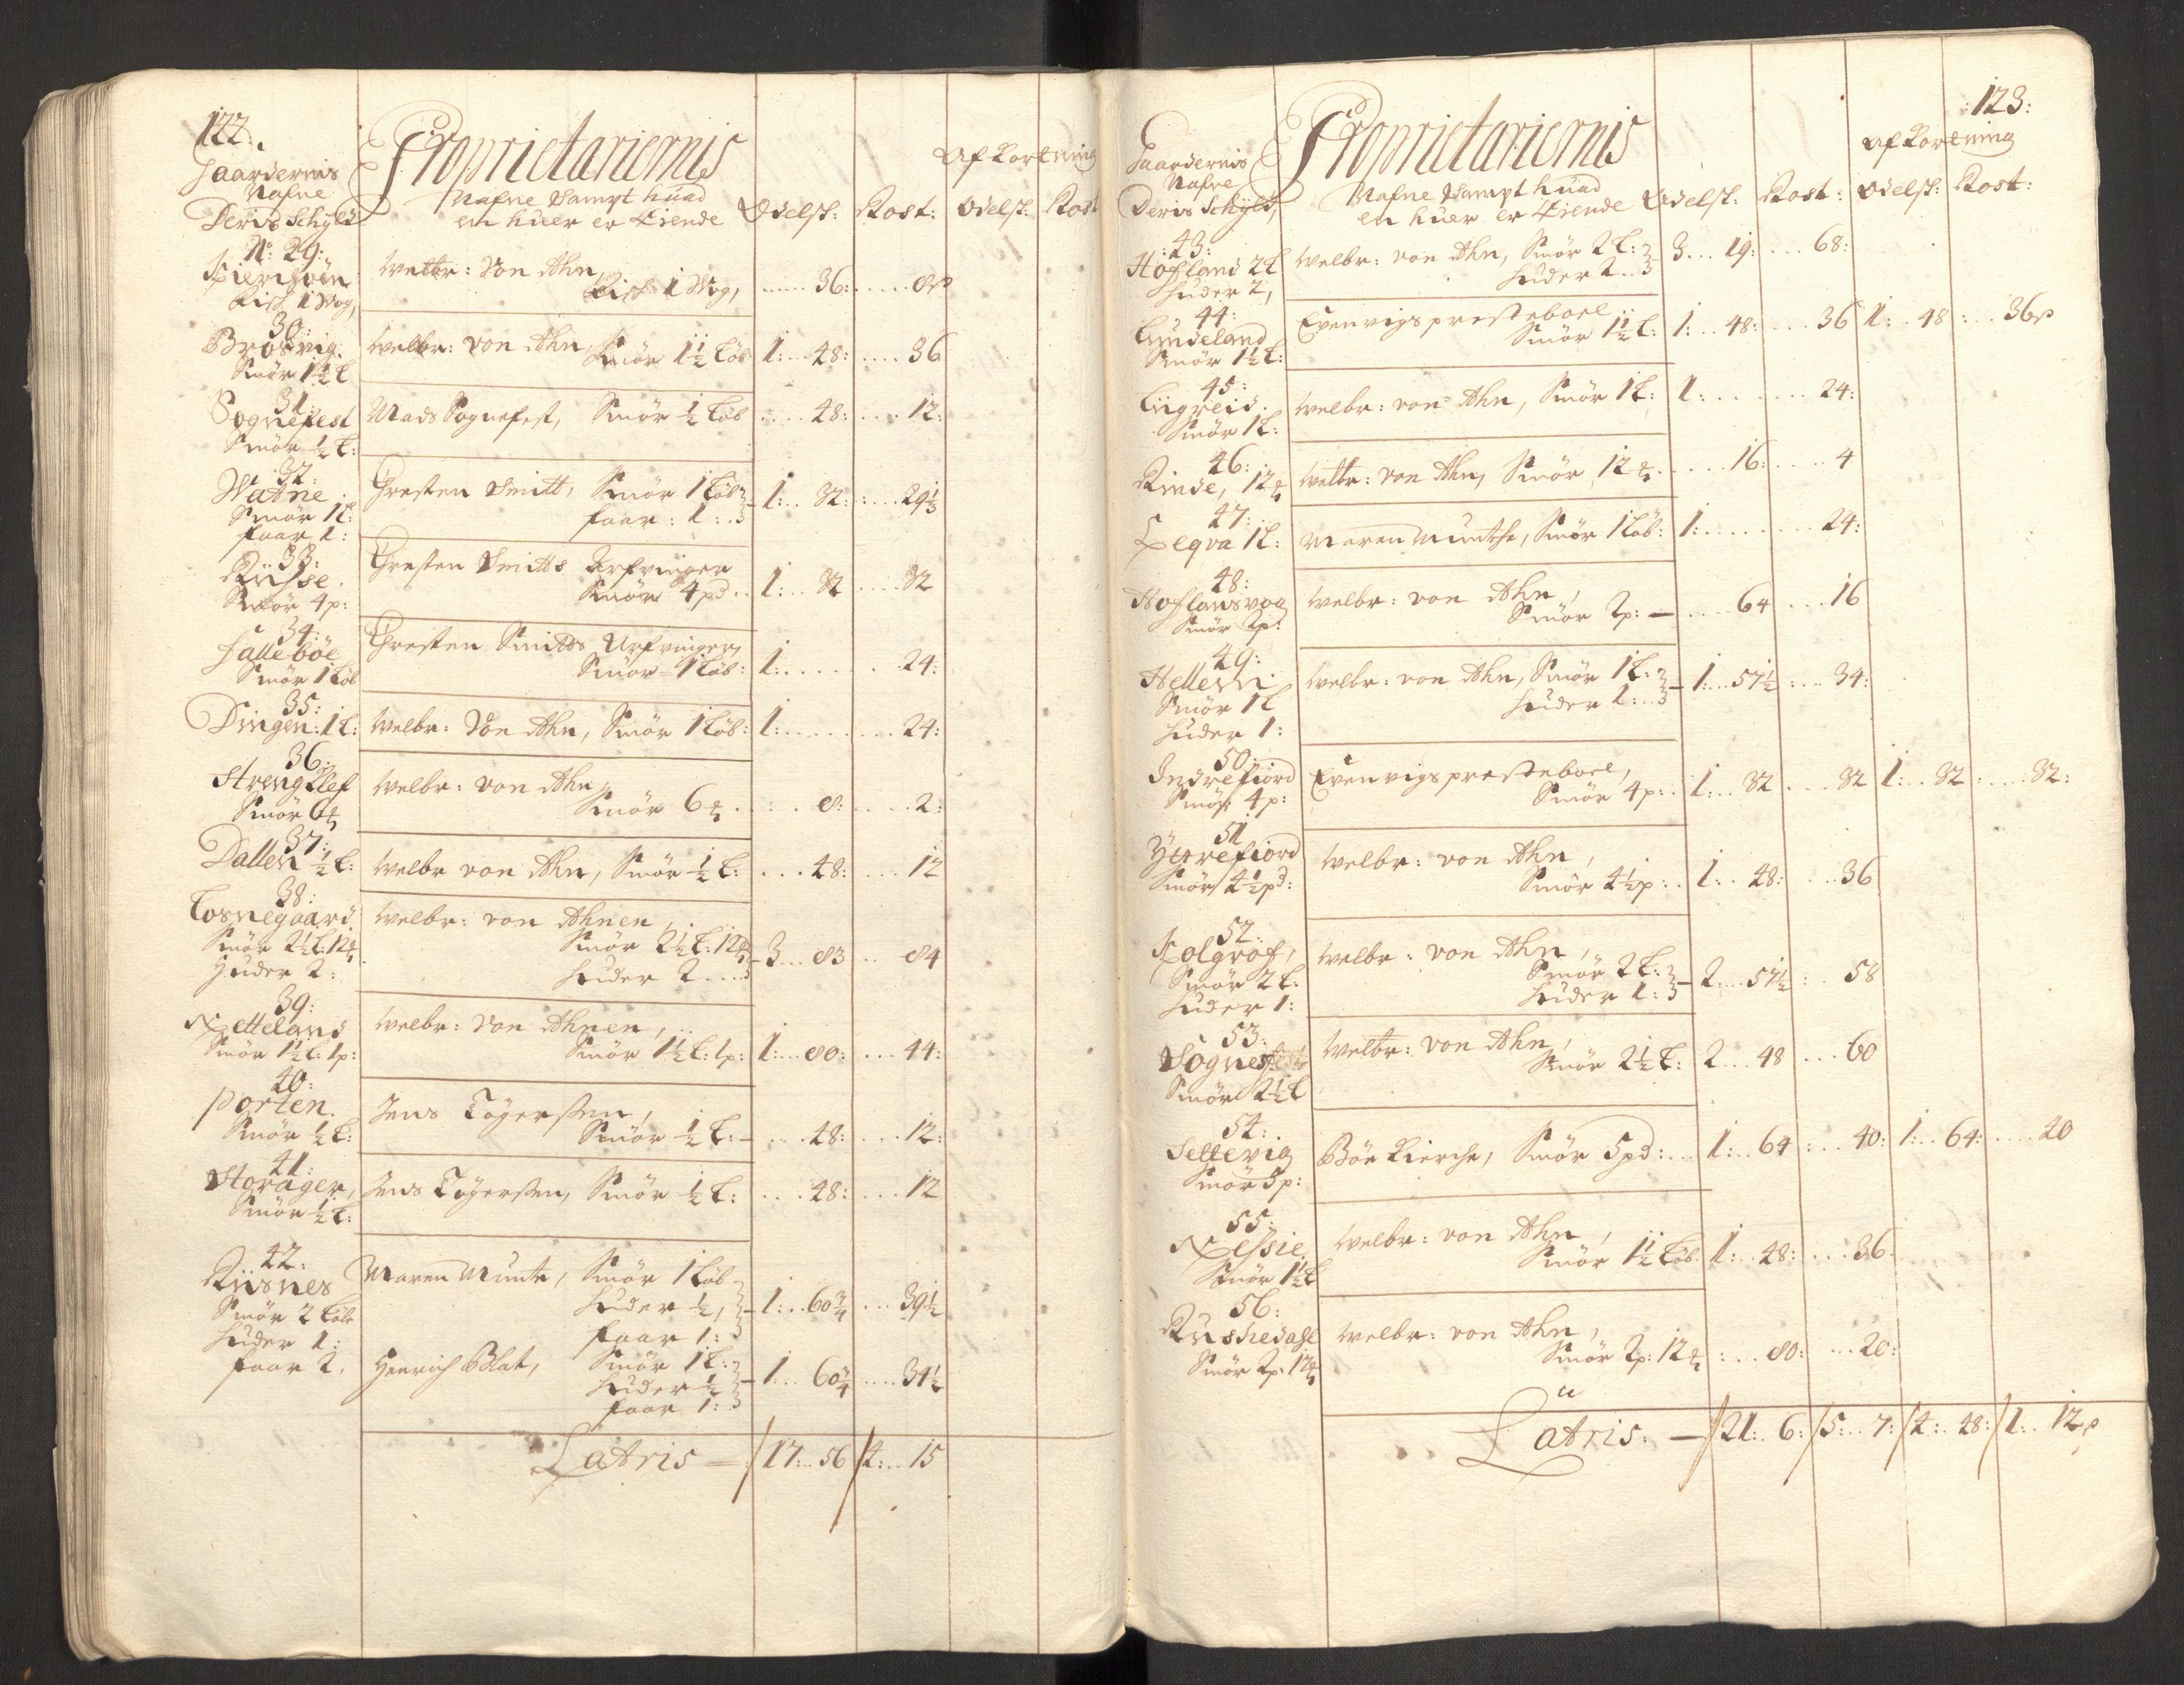 122.
Gaardernis
Nafne
Deris Schyld
Proprietariernis
Nafne Sampt huad
en huer er Eiende
Odelsk:
Rost:
Afkortning
Odelsk:
Rost
N: 29:
Fisk 1 Wog,
welbr: Von Ahn
Fisk 1 Wog, ...... 36: ..... 8
30:
Brosvig.
Smör 1½ l
welbr: von Ahn, Smör 1½ löb 1: ... 48: .... 36
31:
Sognefest
Smör ½ l:
Mads Sognefest, Smör ½ löb ... 48: ... 12:
32:
Watne
Smör 1l:
faar 1:
Chresten Smitt, Smör 1 löb
faar: 1: 1: .. 32: .... 29⅓
33:
Risse.
Smör 4p:
Chresten Smitts Arfvinger
Smör 4pd .. 1: .. 32 .... 32
34:
Salleböe
Smör 1 löb
Chresten Smitts Arfvinger
Smör 1 löb: 1: ....... 24:
35:
Dingen: 1l:
welbr: Von Ahn, Smör 1 löb: 1: ....... 24:
36:
Strengklef
Smör 6
welbr: von Ahn,
Smör 6 . ... 8: .... 2:
37:
Dallen ½ l:
welbr von Ahn, Smör ½ l: ... 48: ... 12
38:
Losnegaard
Smör 2½ l: 12
Huder 2:
welbr: von Ahnen,
Smör 2½ l: 12
Huder 2 .... 3 ... 83 .. 84
39:
Netteland
Smör 1½ l: 1p:
welbr: Von Ahnen,
Smör 1½ l: 1p: 1: ... 80: ... 44:
40:
Porten.
Smör ½ l:
Jens Töger​sen,
Smör ½ l: – ... 48: ... 12:
41:
Storager,
Smör ½ l:
Jens Tögersen, Smör ½ l: ... 48: ... 12
42:
Risnes
Smör 2 löb
Huder 1:
faar 2.
Maren Munte, Smör 1 löb
Huder ½,
faar 1: 1: .. 60¾ ... 39½
Henrich Blat, Smör 1l:
Huder ½
faar 1: 1 ... 60¾ .... 34½
Latris — 17: .. 56 4: .. 15
:123:
Gaardernis
Nafne
Deris Schyld,
Proprietariernis
Nafne Sampt huad
en huer er Eiende
Odelsk:
Rost:
Afkortning
Odelsk:
Rost:
:43:
Hofland 2l
Huder 2,
welbr: von Ahn, Smör 2l:
Huder 2 .. 3 ... 19: ... 68:
44:
Lundeland
Smör 1½ l:
Evenvigs prestebord
Smör 1½ l: 1: .. 48: ... 36 1: .. 48 : ... 36
45:
Liigreid.
Smör 1l:
welbr: von Ahn, Smör 1l: 1: ....... 24:
46:
Rinde, 12
welbr: von Ahn, Smör 12 . .... 16: .... 4
47:
Leqva 1l:
Maren Munthe, Smör 1 löb: 1: ....... 24:
48:
Hoflansvog
Smör 2p:
welbr: von Ahn,
Smör 2p: — .... 64 ... 16
49:
Hellem
Smör 1l
Huder 1:
welbr: von Ahn, Smör 1l:
Huder 1: .. 1: ... 57½ ... 34:
50:
Indrefiord
Smör 4p:
Evenvigs prestebord,
Smör 4p: . 1: .. 32 ... 32 1: .. 32 : .... 32:
51
Yttrefiord
Smör 4½ pd:
welbr: von Ahn,
Smör 4½ p: . 1: .. 48: ... 36
52:
Kolgrof,
Smör 2l:
Huder 1:
welbr: von Ahn,
Smör 2l:
Huder 1: 2 ... 57½ : .. 58
53:
Sognefest
Smör 2½ l
welbr: von Ahn,
Smör 2½ l: 2 ... 48 ... 60
54:
Sellevig
Smör 5p:
Böe Kierche, Smör 5pd: .. 1: .. 64 : ... 40: 1: .. 64: .... 20
55:
Nessie
Smör 1½ l
welbr: von Ahn,
Smör 1½ löb 1: .. 48: ... 36.
56:
Rushedahl
Smör 2p: 12
welbr: von Ahn,
Smör 2p: 12 : ... 80: ... 20:
Latris: — 21: . 6: 5: .. 7: 4: . 48: 1: . 12